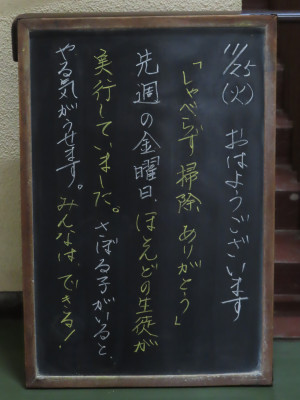 11/25(火) おはようございます
「しゃべらず掃除、ありがとう」
先週の金曜日、ほとんどの生徒が
実行していました。さぼる子がいると、
やる気がうせます。みんなは、できる!